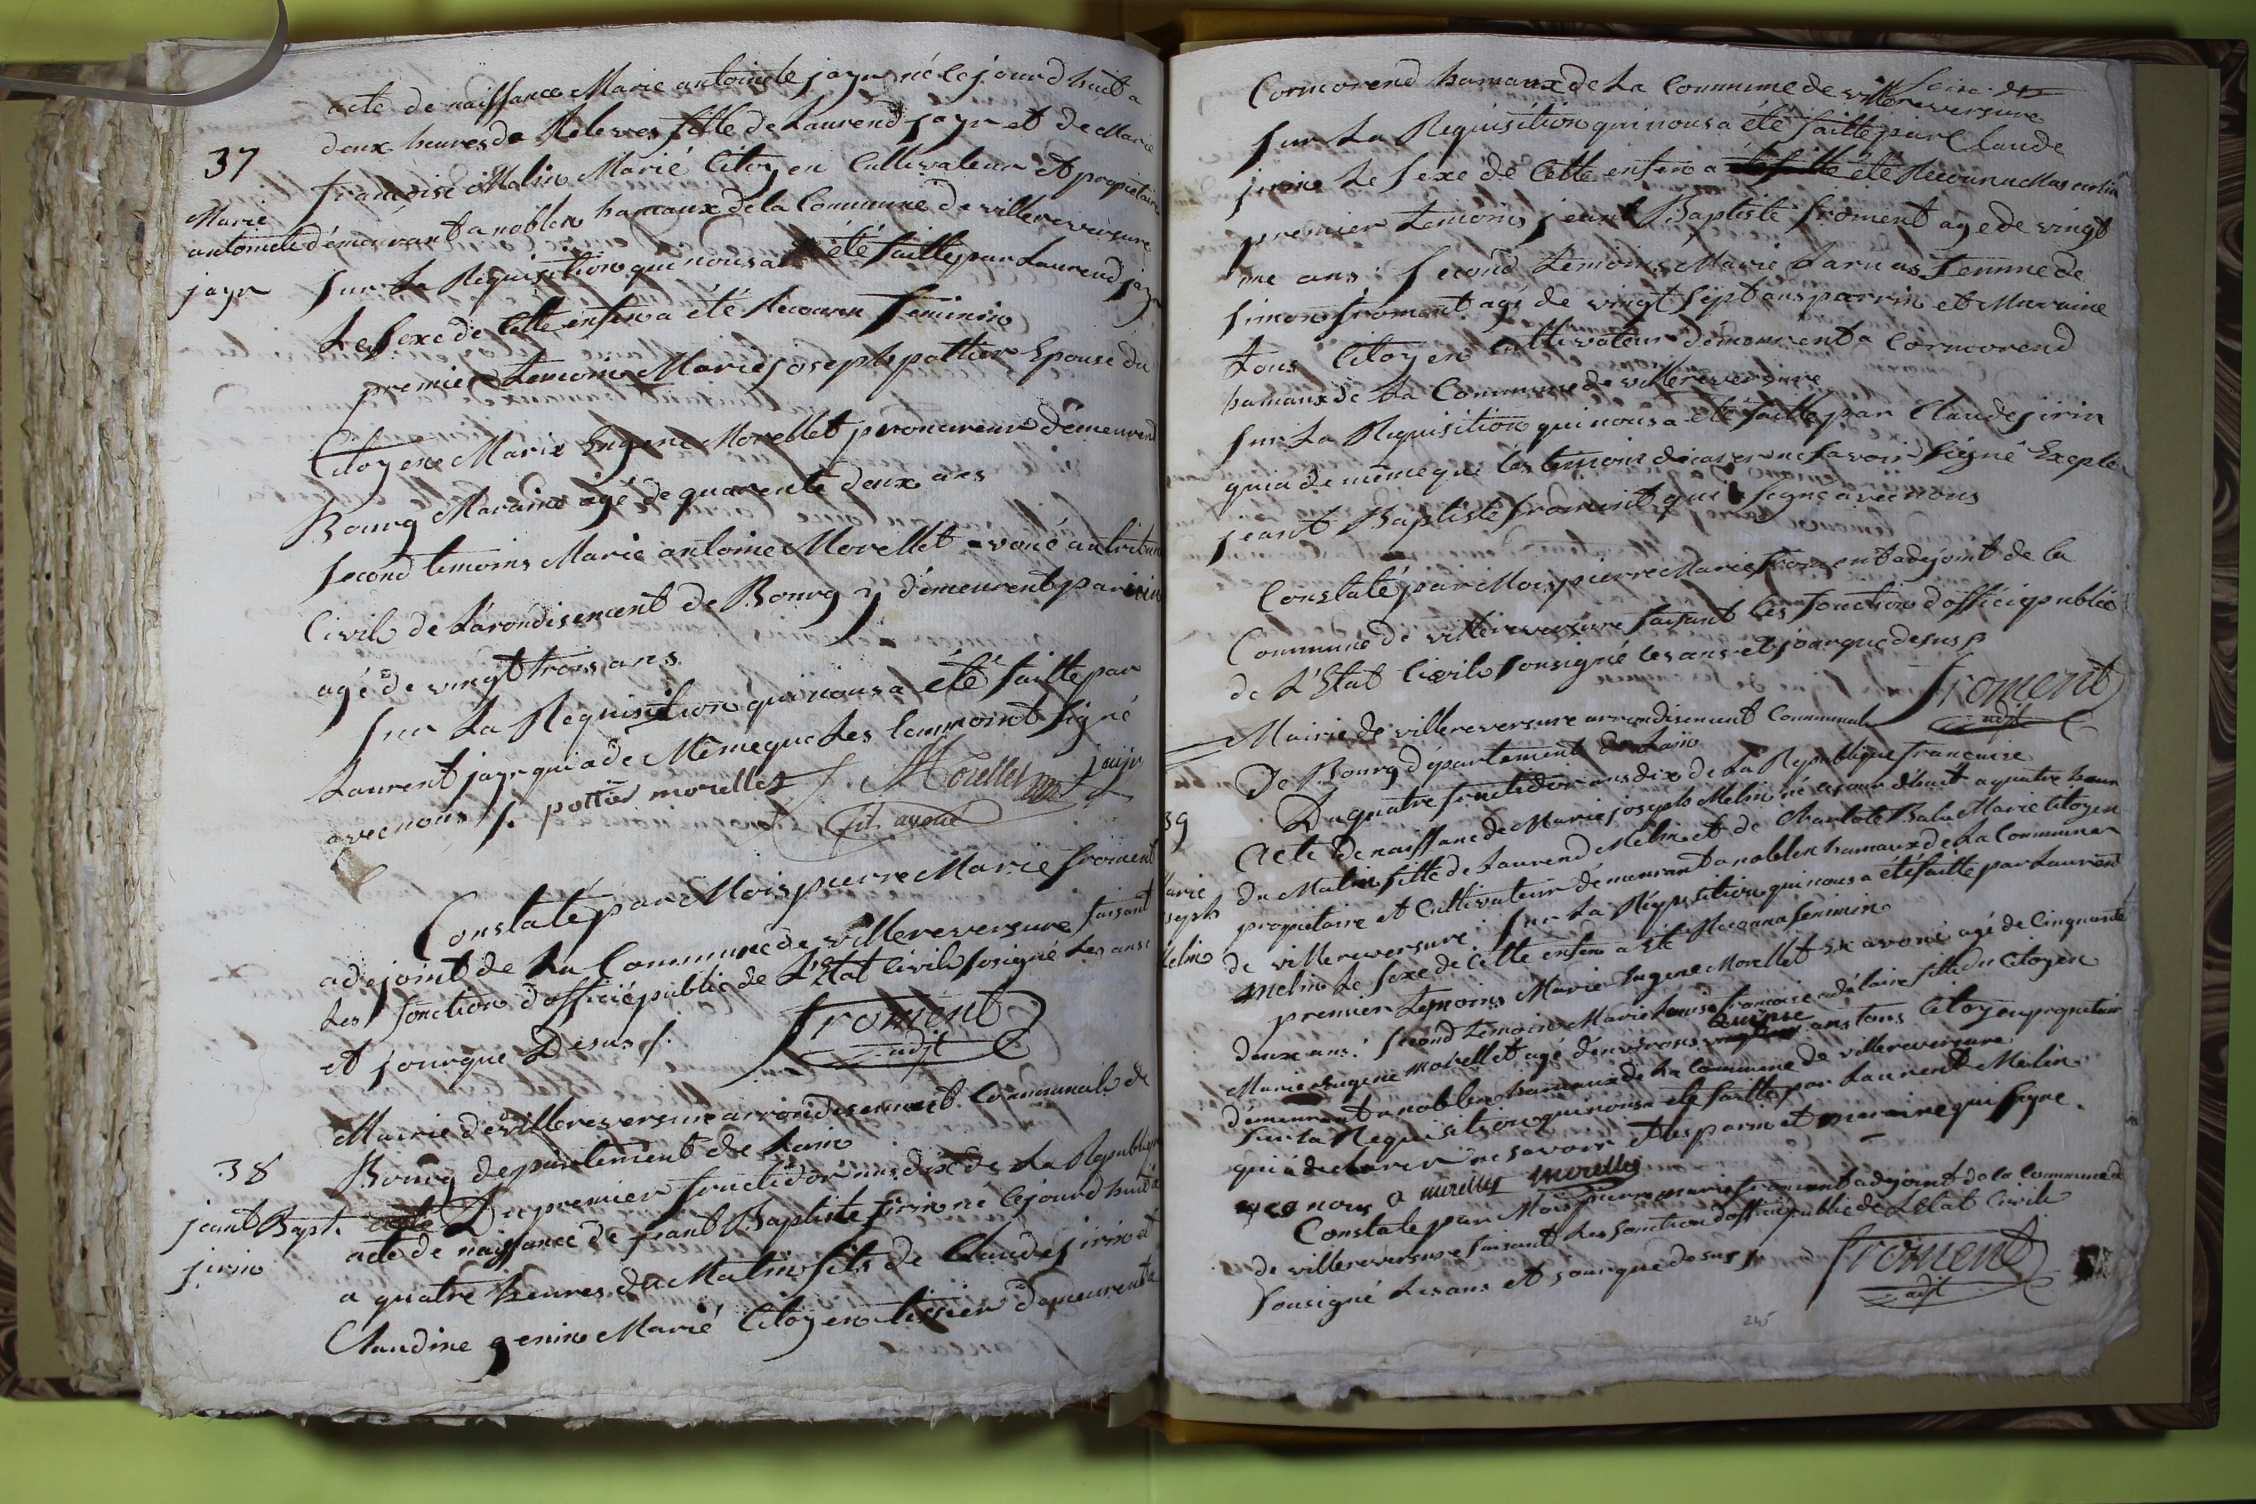 acte de naissance Marie antoinete jayr né ce jourd huit a
deux heures de Releves fille de Laurend jayr et de Marie
37
francoise Melin Marié Citoyen Cultivateur et propietaire
Marie
antoinete
jayr
démeurant a noblen hamaux de la Commune de villereversure
sur La Requisition qui nous a été faitte par Laurend jayr
Le sexe de Cette enfen a été Reconnu feminin
premier temoins Marie joseph pottier Epouse du
Citoyene Marie Eugene Morellet procureur démeurend
Bourg Maraine agé de quarente deux ans
second temoins Marie antoine Morellet avoué au tribun
Civil de Larondisement de Bourg y démeurent parrin
agé de vingt trois ans
sur La Requisition qui nous a été faitte par
Laurent jayr qui a de Même que Les temmoint signé
avec nous /. pottier morellet f. A Morellet jaijr
fil avoué
Constaté par Mois pierre Marie froment
adejoint de La Commune de villereversure faisant
Les fonction d'officié public de L'Etat Civile sosigné Les ans
et jourque Desus /.
froment
adjt
Mairie de villereversure arrondisement Communale de
Bourg departement de Lain
38
jeant Bapt.
jirin
Du premier fructidor ans dix de La Republique
acte de naissance de jeant Baptiste jirin né cejourd huit à
a quatre heures du Matin fils de Claude jirin et
Claudine genin Marié Citoyen tissier demeurent a
Cormorend hamaux de La Commune de villereversure
sur La Requisition qui nous a été faitte par Claude
jirin Le sexe de Cette enfen a été Reconnu Masculin
premier temoins jeant Baptiste froment age de vingt
une ans : second temoins Marie Larnas femme de
simon froment agé de vingt sept ans parrin et Maraine
tous Citoyen Cultivateur démeurent a Cormorend
hamaux de La Commune de villereversure
sur La Requisition qui nous a été faitte par Claude jirin
qui a de même que les temoins déclarer ne savoir signé Exepté
jeant Baptiste froment qui a signé avec nous
Constaté par Mois pierre Marie froment adejoint de la
Commune de villereversure faisant les fonction d'officié public
de L'Etat Civile sousigné les ans et jourque desus /.
froment
adjt
Mairie de villereversure arrondisement Communale
De Bourg département de Lain
Du quatre fructidor ans dix de La Republique francaise
39
Acte de naissance de Marie joseph Melin né ce jour d'huit a quatre heure
Marie
joseph
Melin
du Matin fille de Laurend Melin et de Charlote Balu Marié Citoyen
propietaire et Cultivateur démeurant a noblen hamaux de La Commune
de villereversure sur La Réqusition qui nous a été faitte par Laurent
Melin Le sexe de Cette enfen a été Reconnu feminin
premier temoins Marie Eugene Morellet Ex avoué agé de Cinquante
deux ans : second temoin Marie Louise francoise adélaire fille du Citoyen
Marie Eugene Morellet agé d'environs quinse ans tous Citoyen propietaire
démeurent a noblen hamaux de La Commune de villereversure
sur La Requisition qui nous a été faitte par Laurent Melin
qui a déclarer ne savoir et les parin et maraine qui signe
avec nous morellet morellet
Constaté par Mois pierre marie froment adejoint de la Commune
de villereversure faisant Les fonction d'officié public de L'Etat Civile
sousigné Les ans et jourque desus /.
froment
adjt
245